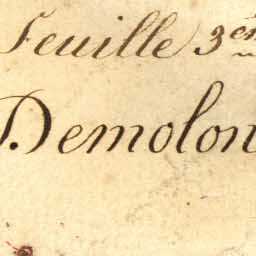 Feuille 3em
Demolon